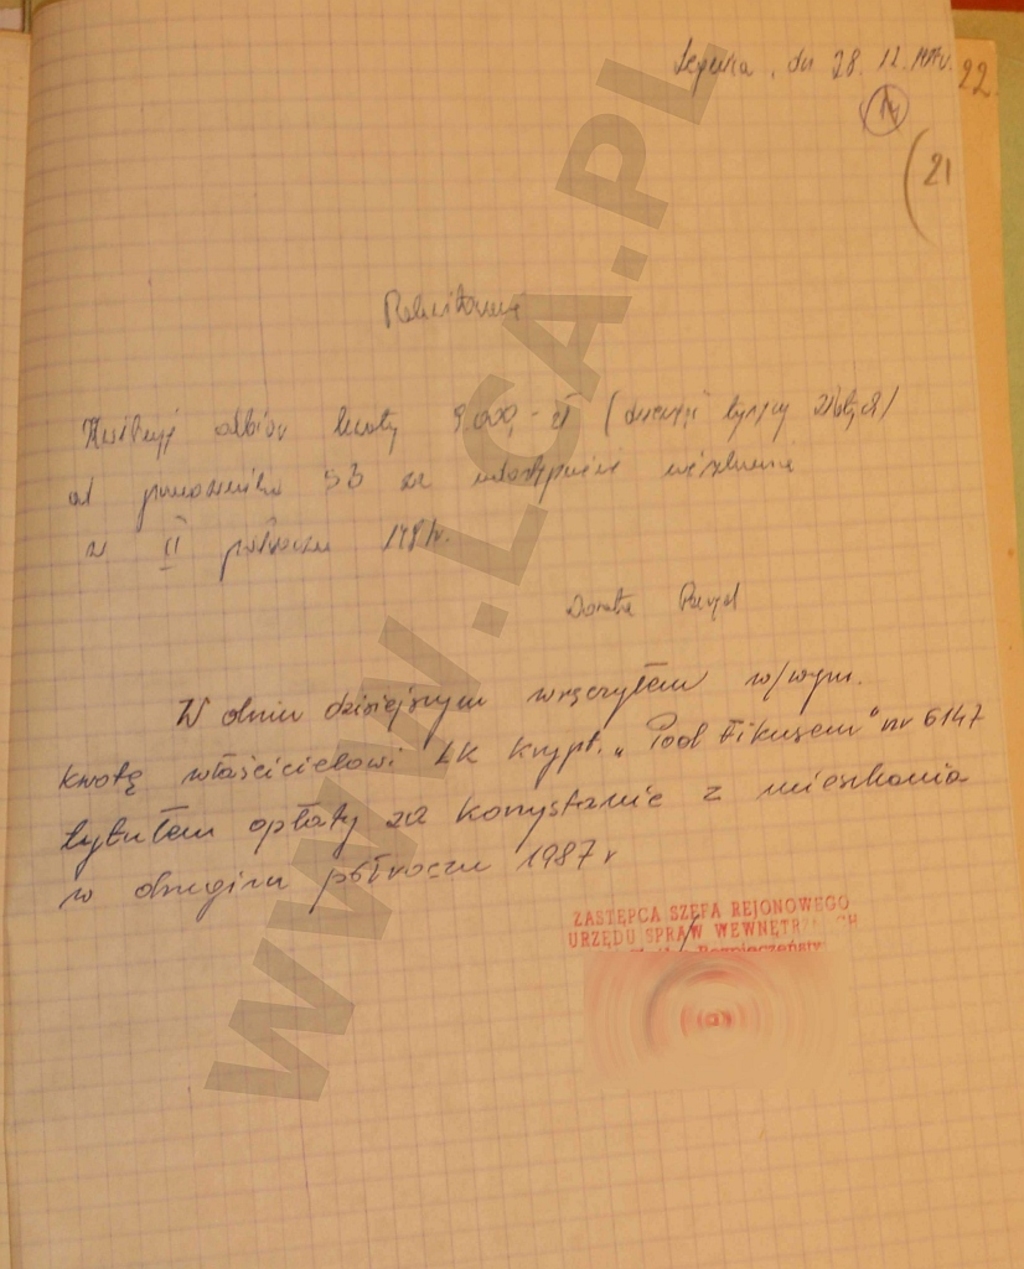 Legnica, dn 28. 12. 1987r. 22.
14
(21
Pokwitowanie
Kwituję odbiór kwoty 9.000,- zł (dziewięć tysięcy złotych)
od pracownika SB za udostępnienie mieszkania
w II półroczu 1987r.
Dorota
W dniu dzisiejszym wręczyłem w/wym.
kwotę właścicielowi LK krypt. „Pod Fikusem" nr 6147
tytułem opłaty za korzystanie z mieszkania
w drugim półroczu 1987 r
ZASTĘPCA SZEFA REJONOWEGO
URZĘDU SPRAW WEWNĘTRZNYCH
WWW.LCA.PL